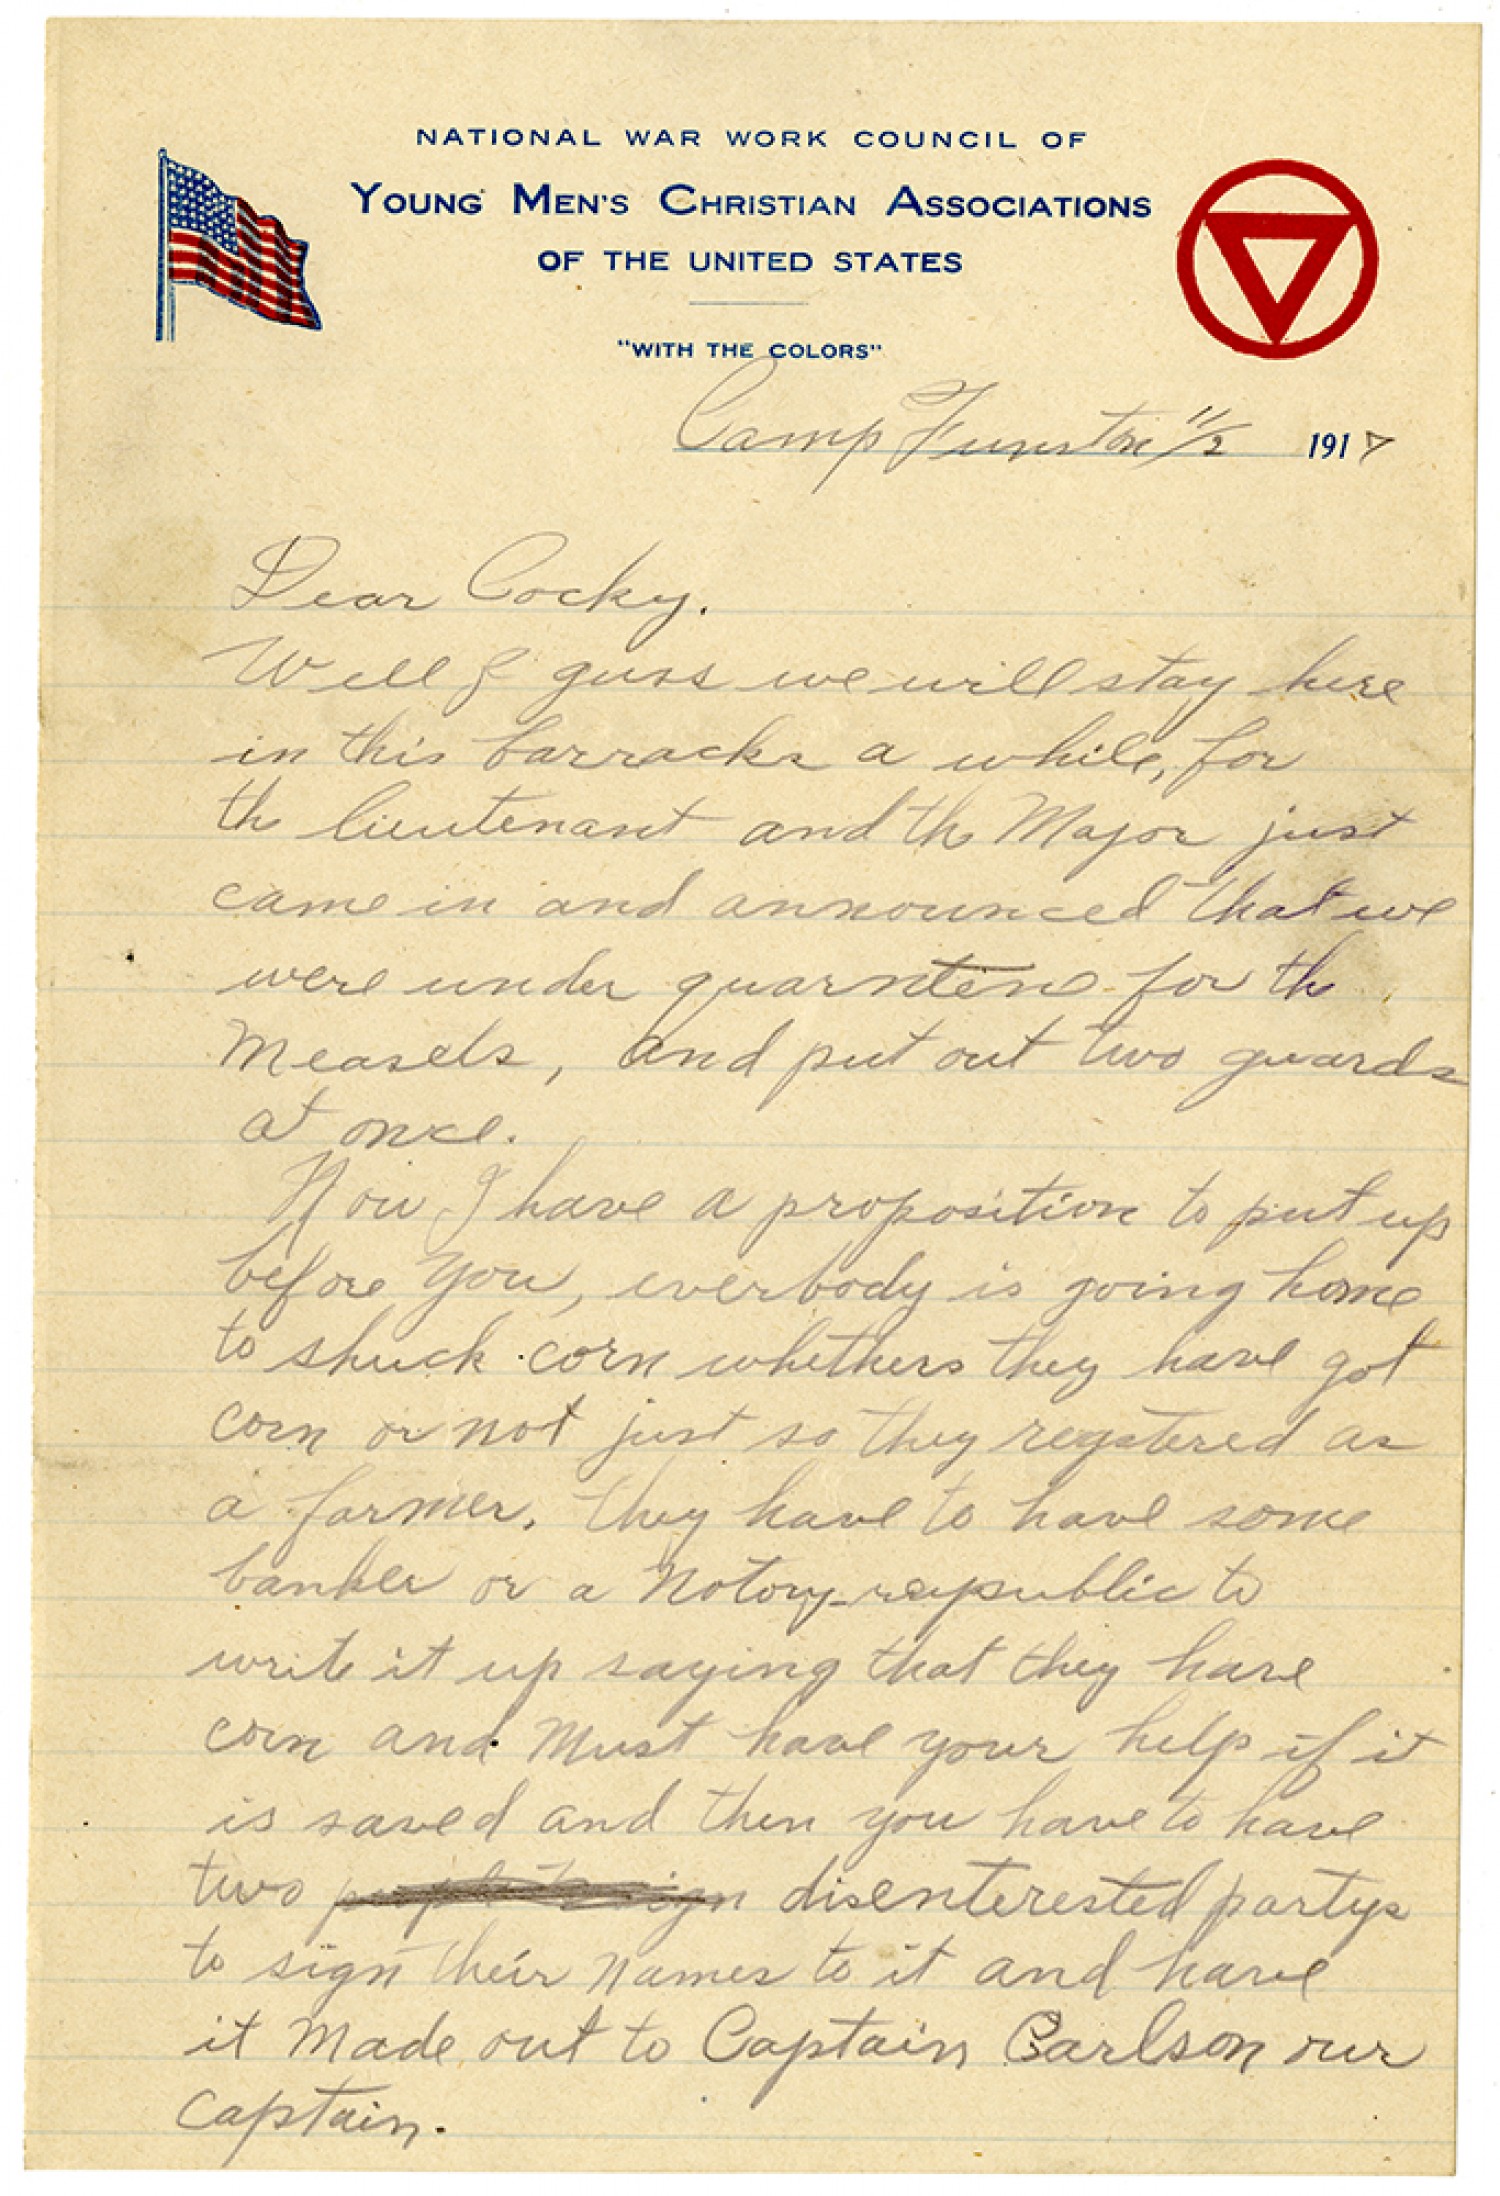 NATIONAL WAR WORK COUNCIL OF
YOUNG MEN'S CHRISTIAN ASSOCIATIONS
OF THE UNITED STATES
"WITH THE COLORS"
Camp Funston 11/2 1917
Dear Cocky.
Well I guss we will stay here
in this barracks a while, for
th lieutenant and th Major just
came in and announced that we
were under quarntine for th
Measels, and put out two guards
at once.
Now I have a proposition to put up
before you, everbody is going home
to shuck corn whethers they have got
corn or not just so they regstered as
a farmer. they have to have some
banker or a Notory republic to
write it up saying that they have
corn and Must have your help if it
is saved and then you have to have
two disenterested partys
to sign their names to it and have
it Made out to Captain Carlson our
captain.